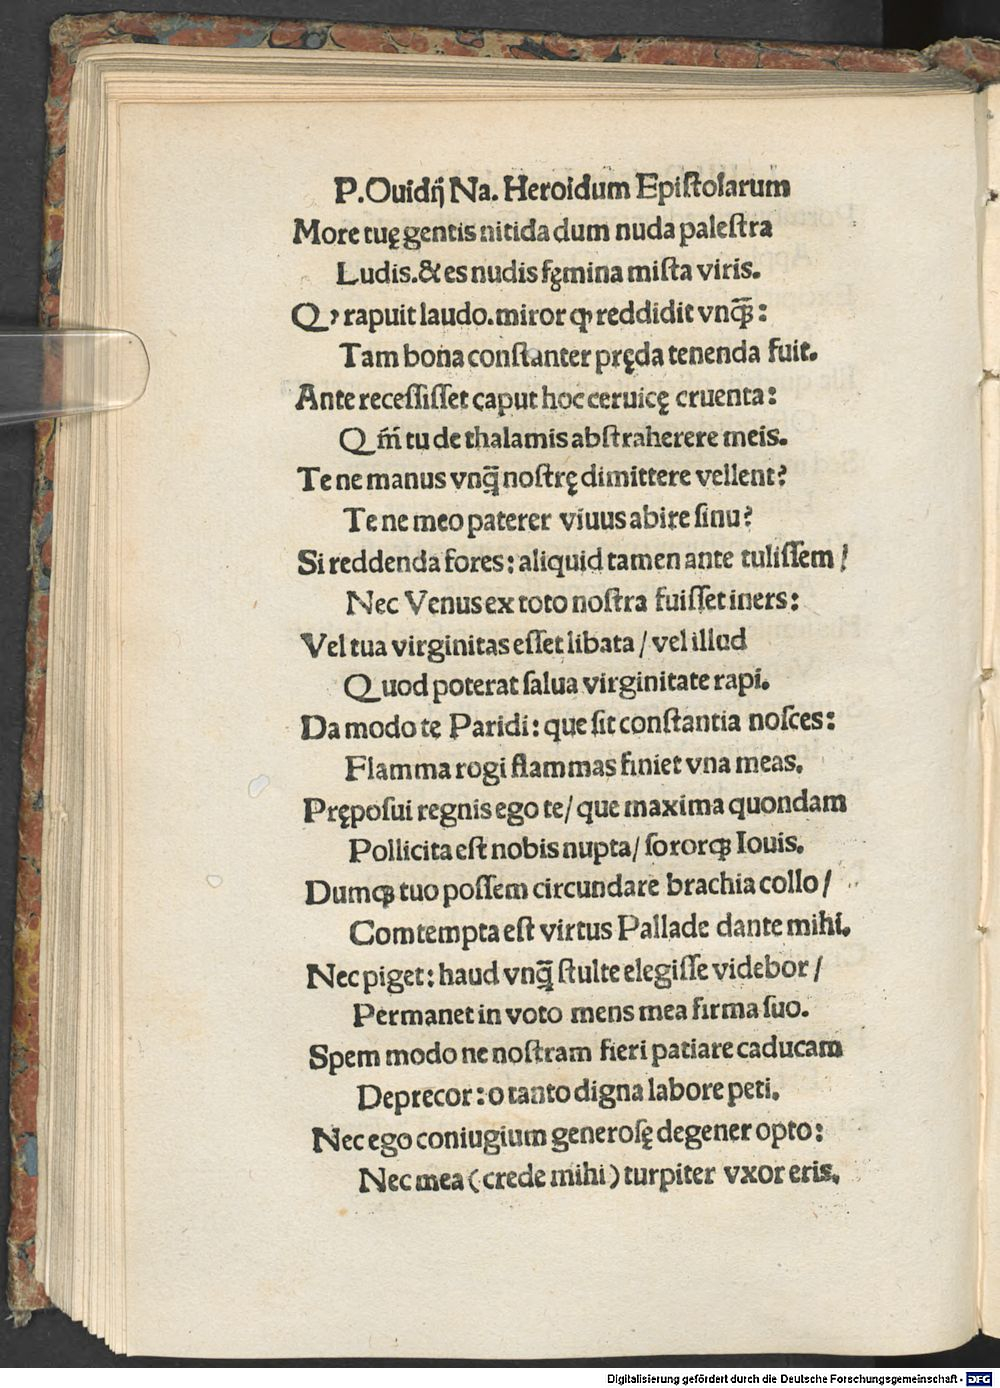 P. Ouidij Na. Heroidum Epiſtolarum
More tuę gentis nitida dum nuda paleſtra
Ludis. & es nudis fęmina miſta viris.
Qꝫ rapuit laudo. miror ꝙ reddidit vnꝗ̄:
Tam bona conſtanter pręda tenenda fuit.
Ante receſſiſſet caput hoc ceruicę cruenta:
Qm̄ tu de thalamis abſtraherere meis.
Te ne manus vnq̄ noſtrę dimittere vellent?
Te ne meo paterer viuus abire ſinu?
Si reddenda fores: aliquid tamen ante tuliſſem /
Nec Venus ex toto noſtra fuiſſet iners:
Vel tua virginitas eſſet libata / vel illud
Quod poterat ſalua virginitate rapi.
Da modo te Paridi: que ſit conſtantia noſces:
Flamma rogi flammas finiet vna meas.
Prępoſui regnis ego te / que maxima quondam
Pollicita eſt nobis nupta / ſororꝙ Iouis.
Dumꝙ tuo poſſem circundare brachia collo /
Comtempta eſt virtus Pallade dante mihi.
Nec piget: haud vnq̄ ſtulte elegiſſe videbor /
Permanet in voto mens mea firma ſuo.
Spem modo ne noſtram fieri patiare caducam
Deprecor: o tanto digna labore peti.
Nec ego coniugium generoſę degener opto:
Nec mea (crede mihi) turpiter vxor eris.
Digitalisierung gefördert durch die Deutsche Forschungsgemeinschaft - DFG